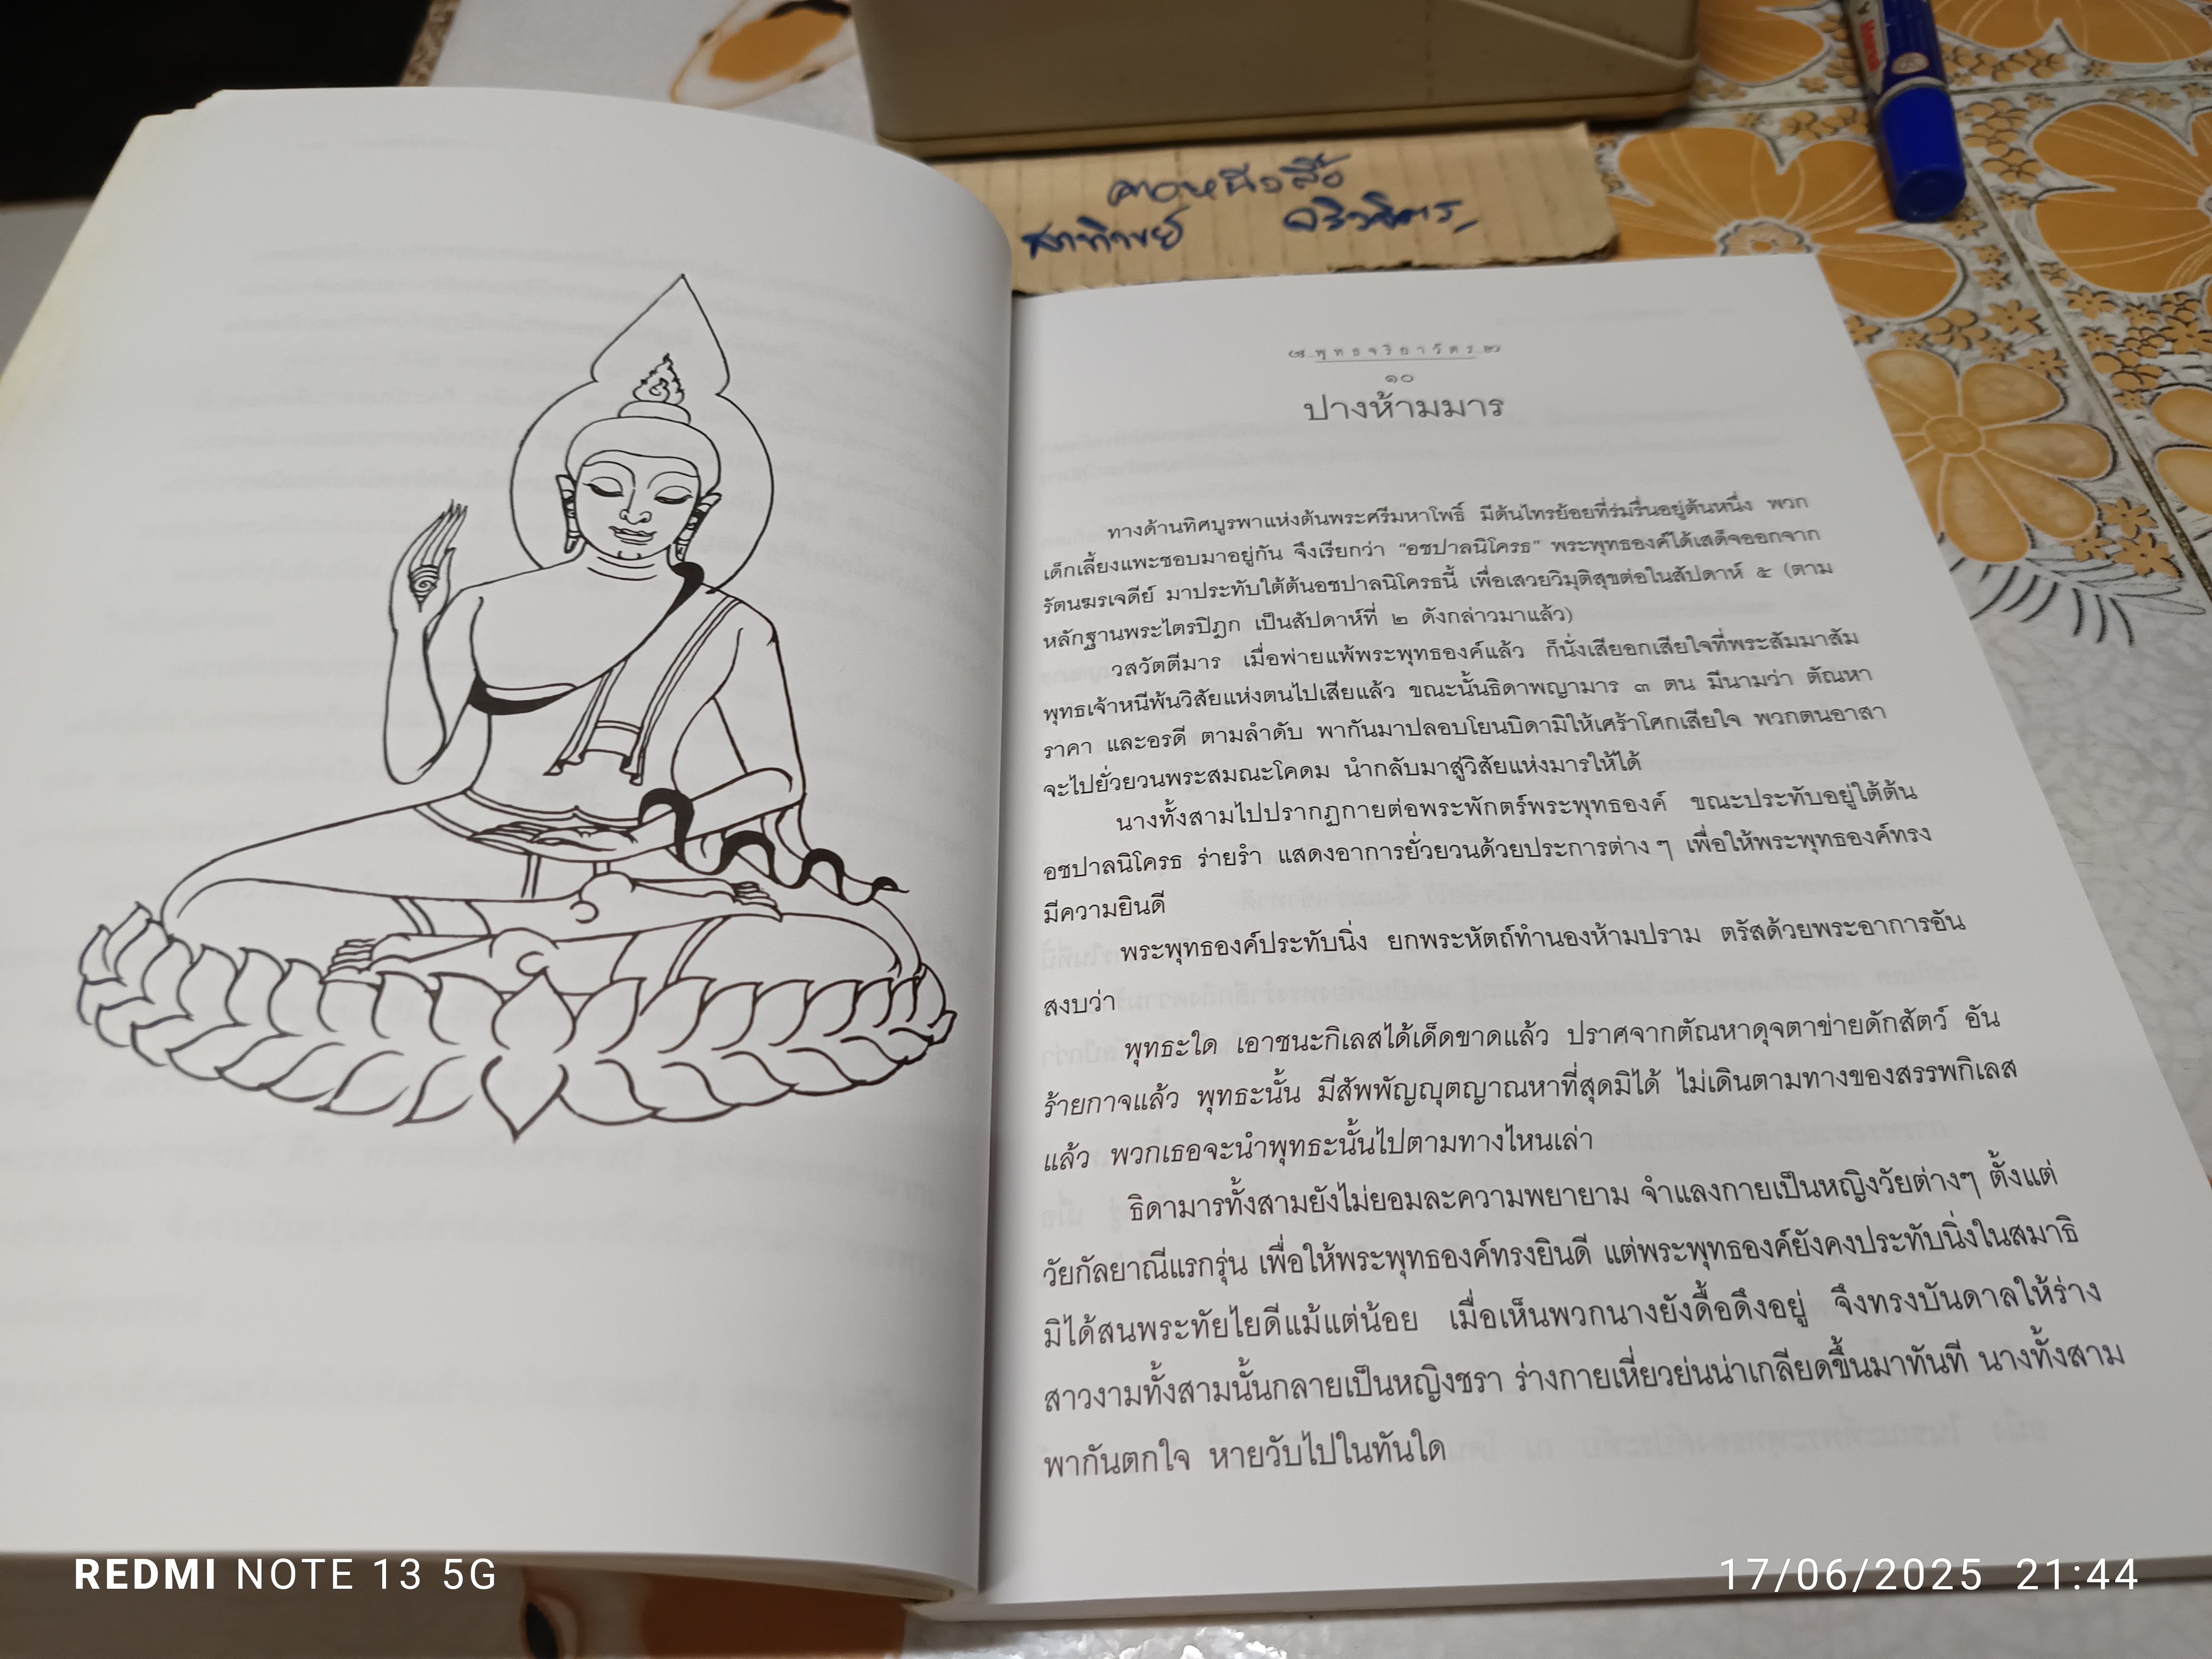 คาดหนังสือ
๗ พุทธจริยาวัตร ๒
๑๐
ปางห้ามมาร
ทางด้านทิศบูรพาแห่งต้นพระศรีมหาโพธิ์ มีต้นไทรย้อยที่ร่มรื่นอยู่ต้นหนึ่ง พวก
เด็กเลี้ยงแพะชอบมาอยู่กัน จึงเรียกว่า “อชปาลนิโครธ” พระพุทธองค์ได้เสด็จออกจาก
รัตนฆรเจดีย์ มาประทับใต้ต้นอชปาลนิโครธนี้ เพื่อเสวยวิมุติสุขต่อในสัปดาห์ ๕ (ตาม
หลักฐานพระไตรปิฎก เป็นสัปดาห์ที่ ๒ ดังกล่าวมาแล้ว)
วสวัตตีมาร เมื่อพ่ายแพ้พระพุทธองค์แล้ว ก็นั่งเสียอกเสียใจที่พระสัมมาสัม
พุทธเจ้าหนีพ้นวิสัยแห่งตนไปเสียแล้ว ขณะนั้นธิดาพญามาร ๓ ตน มีนามว่า ตัณหา
ราคา และอรดี ตามลำดับ พากันมาปลอบโยนบิดามิให้เศร้าโศกเสียใจ พวกตนอาสา
จะไปยั่วยวนพระสมณะโคดม นำกลับมาสู่วิสัยแห่งมารให้ได้
นางทั้งสามไปปรากฏกายต่อพระพักตร์พระพุทธองค์ ขณะประทับอยู่ใต้ต้น
อชปาลนิโครธ ร่ายรำ แสดงอาการยั่วยวนด้วยประการต่าง ๆ เพื่อให้พระพุทธองค์ทรง
มีความยินดี
พระพุทธองค์ประทับนิ่ง ยกพระหัตถ์ทำนองห้ามปราม ตรัสด้วยพระอาการอัน
สงบว่า
พุทธะใด เอาชนะกิเลสได้เด็ดขาดแล้ว ปราศจากตัณหาดุจตาข่ายดักสัตว์ อัน
ร้ายกาจแล้ว พุทธะนั้น มีสัพพัญญุตญาณหาที่สุดมิได้ ไม่เดินตามทางของสรรพกิเลส
แล้ว พวกเธอจะนำพุทธะนั้นไปตามทางไหนเล่า
ธิดามารทั้งสามยังไม่ยอมละความพยายาม จำแลงกายเป็นหญิงวัยต่างๆ ตั้งแต่
วัยกัลยาณีแรกรุ่น เพื่อให้พระพุทธองค์ทรงยินดี แต่พระพุทธองค์ยังคงประทับนิ่งในสมาธิ
มิได้สนพระทัยไยดีแม้แต่น้อย เมื่อเห็นพวกนางยังดื้อดึงอยู่ จึงทรงบันดาลให้ร่าง
สาวงามทั้งสามนั้นกลายเป็นหญิงชรา ร่างกายเหี่ยวย่นน่าเกลียดขึ้นมาทันที นางทั้งสาม
พากันตกใจ หายวับไปในทันใด
REDMI NOTE 13 5G
17/06/2025 21:44